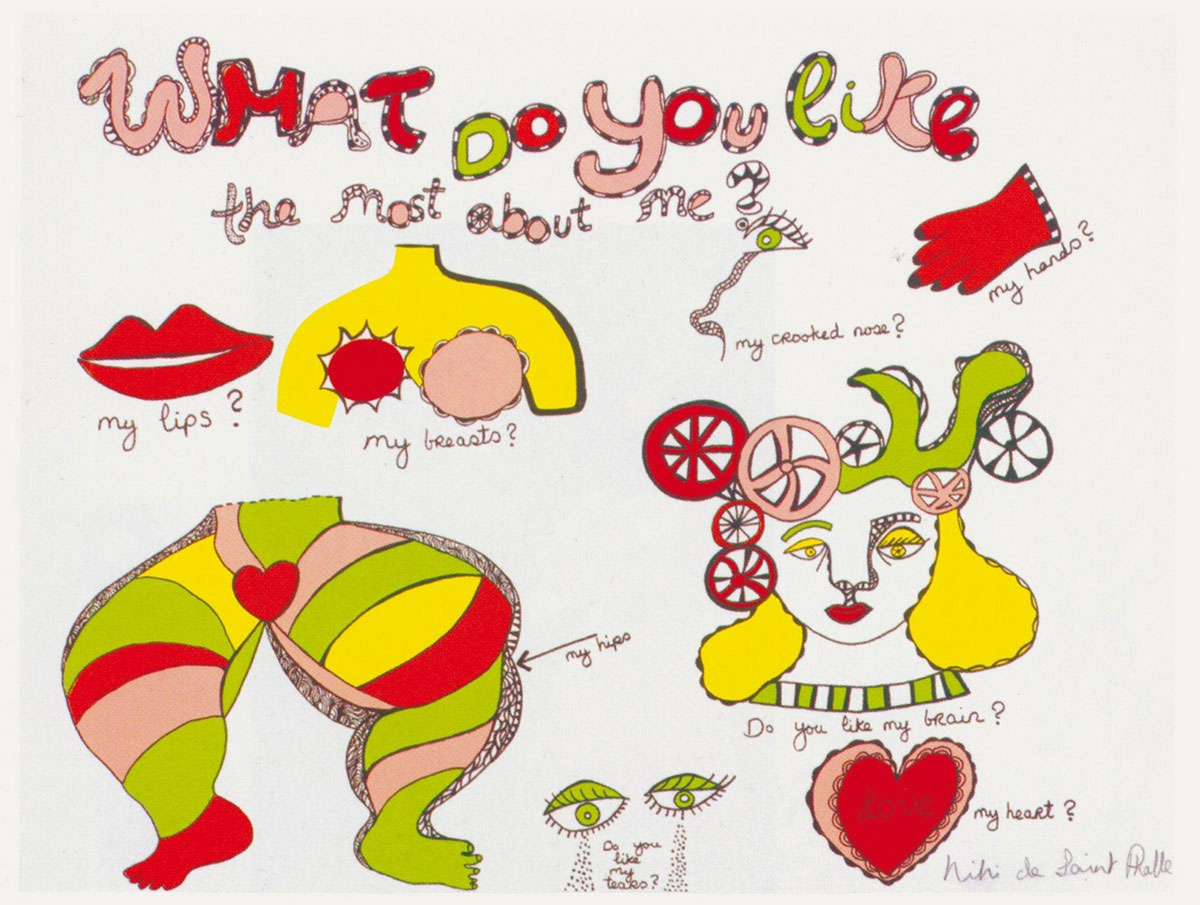 WHAT DO YOU like
the most about me?
my hands?
my crooked nose?
my lips?
my breasts?
my hips
Do you like my brain?
Love
my heart?
Do you
like
my
tears?
Niki de Saint Phalle